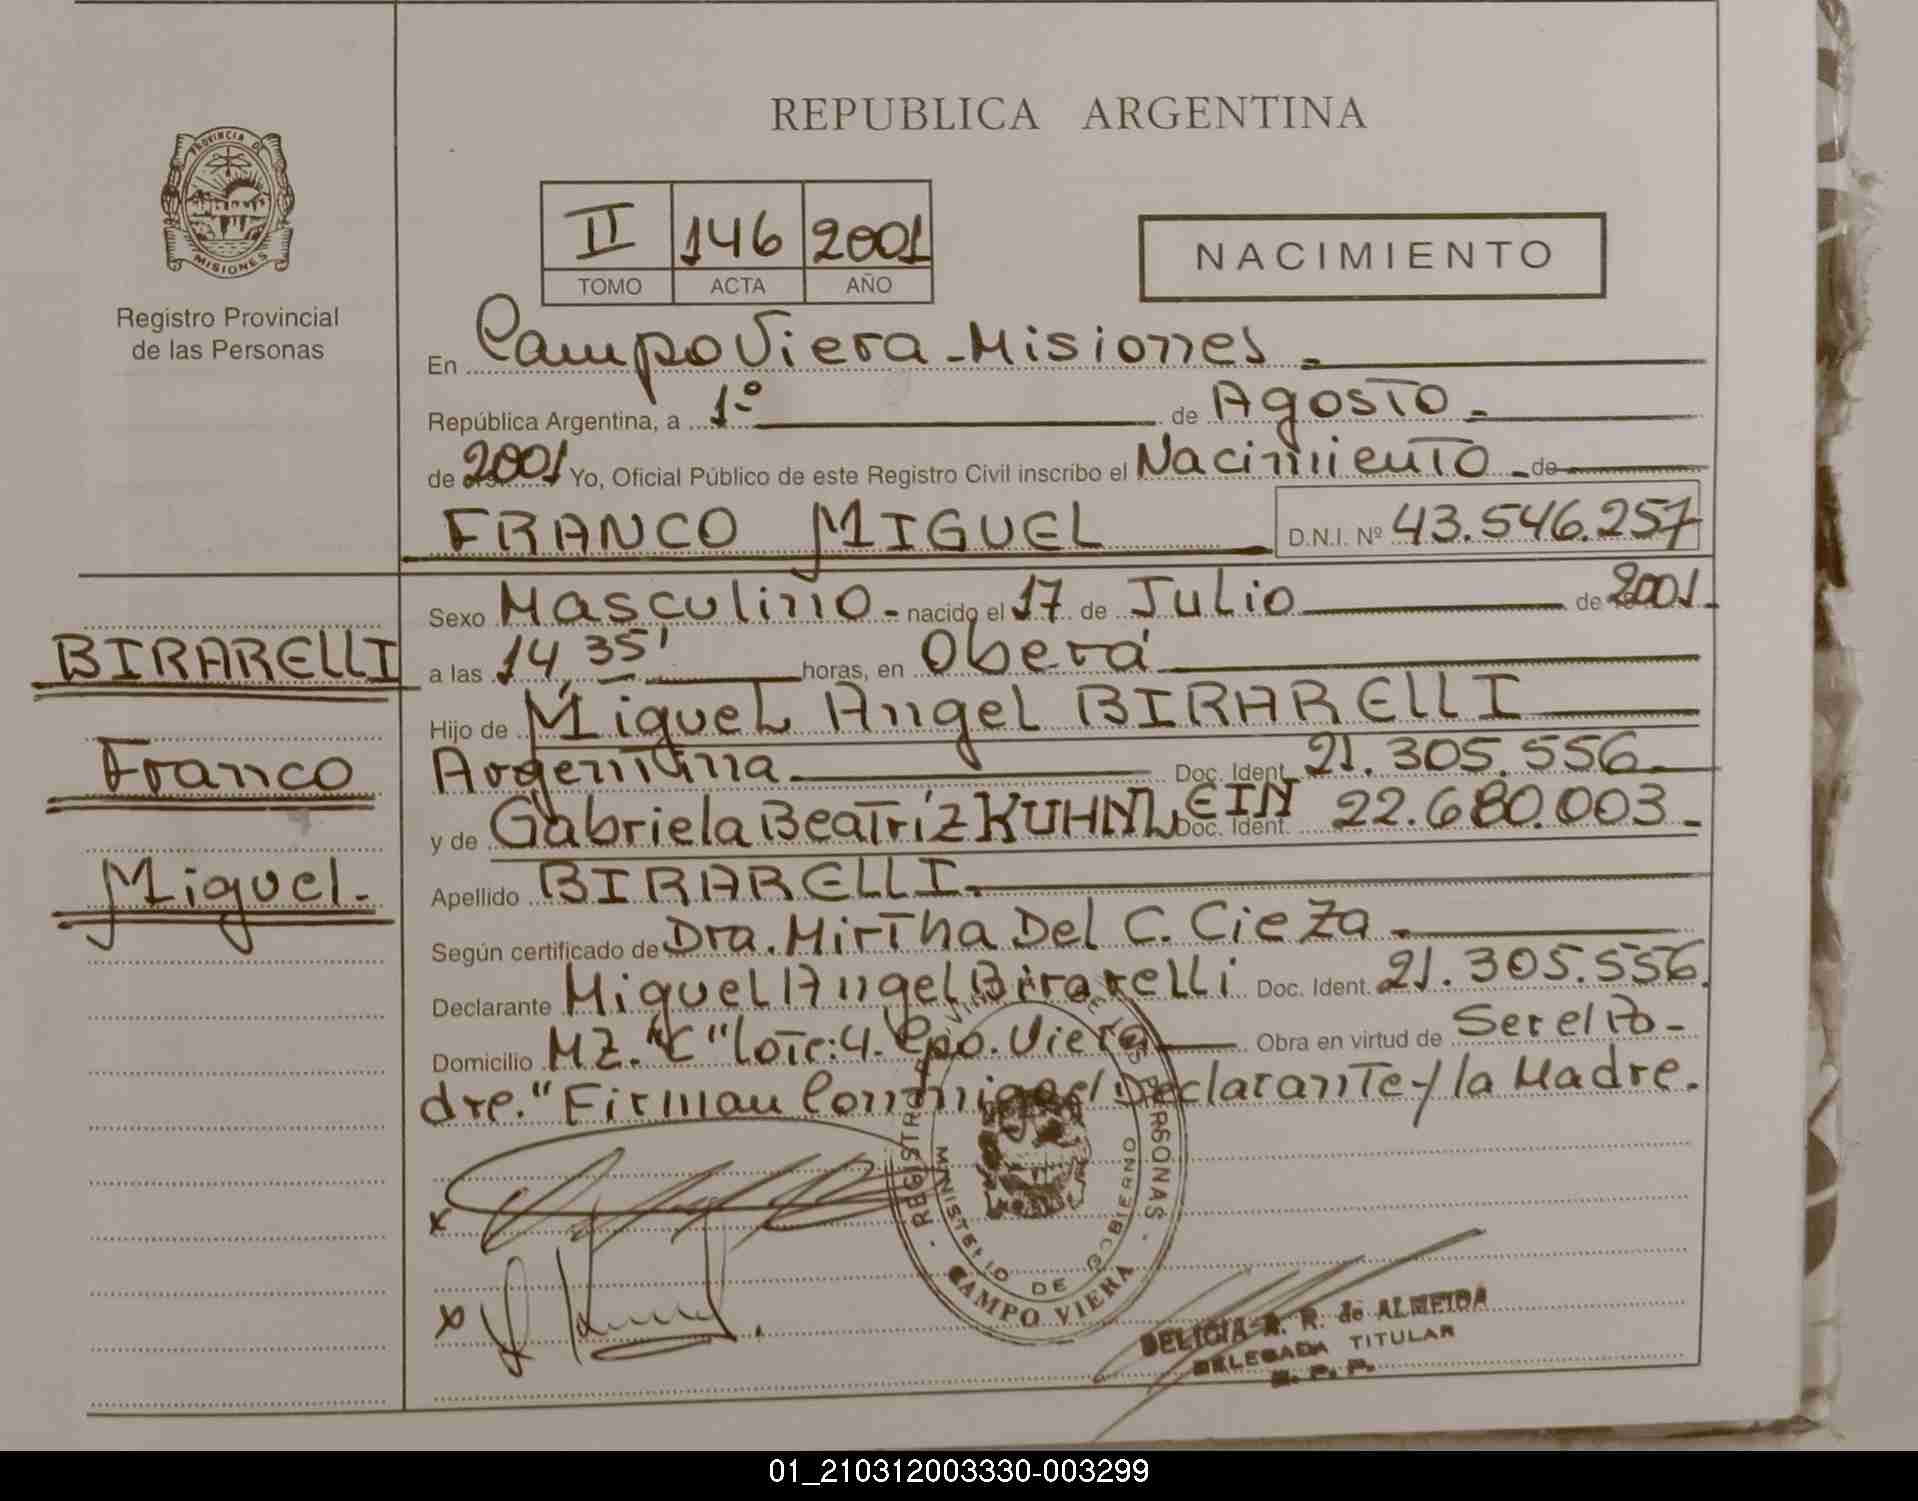 REPUBLICA ARGENTINA
PROVINCIA DE
MISIONES
Registro Provincial
de las Personas
II 146 2001
TOMO ACTA AÑO
NACIMIENTO
En Campo Viera - Misiones
República Argentina, a 1º de Agosto
de 2001 Yo, Oficial Público de este Registro Civil inscribo el Nacimiento de
FRANCO MIGUEL D.N.I. Nº 43.546.257
BIRARELLI
Franco
Miguel.
Sexo Masculino - nacido el 17 de Julio de 2001
a las 14,35' horas, en Oberá
Hijo de Miguel Angel BIRARELLI
Argentina Doc. Ident. 21.305.556
y de Gabriela Beatríz KUHNLEIN Doc. Ident. 22.680.003
Apellido BIRARELLI
Según certificado de Dra. Mirtha Del C. Cieza
Declarante Miguel Angel Birarelli Doc. Ident. 21.305.556
Domicilio MZ. "C" lote: 4. Cpo. Viera Obra en virtud de Ser el Pa-
dre." Firman Conmigo el Declarante y la Madre.
REGISTRO PROVINCIAL DE LAS PERSONAS
MINISTERIO DE GOBIERNO
CAMPO VIERA
DELICIA R. de ALMEIDA
DELEGADA TITULAR
R. P. P.
01_210312003330-003299